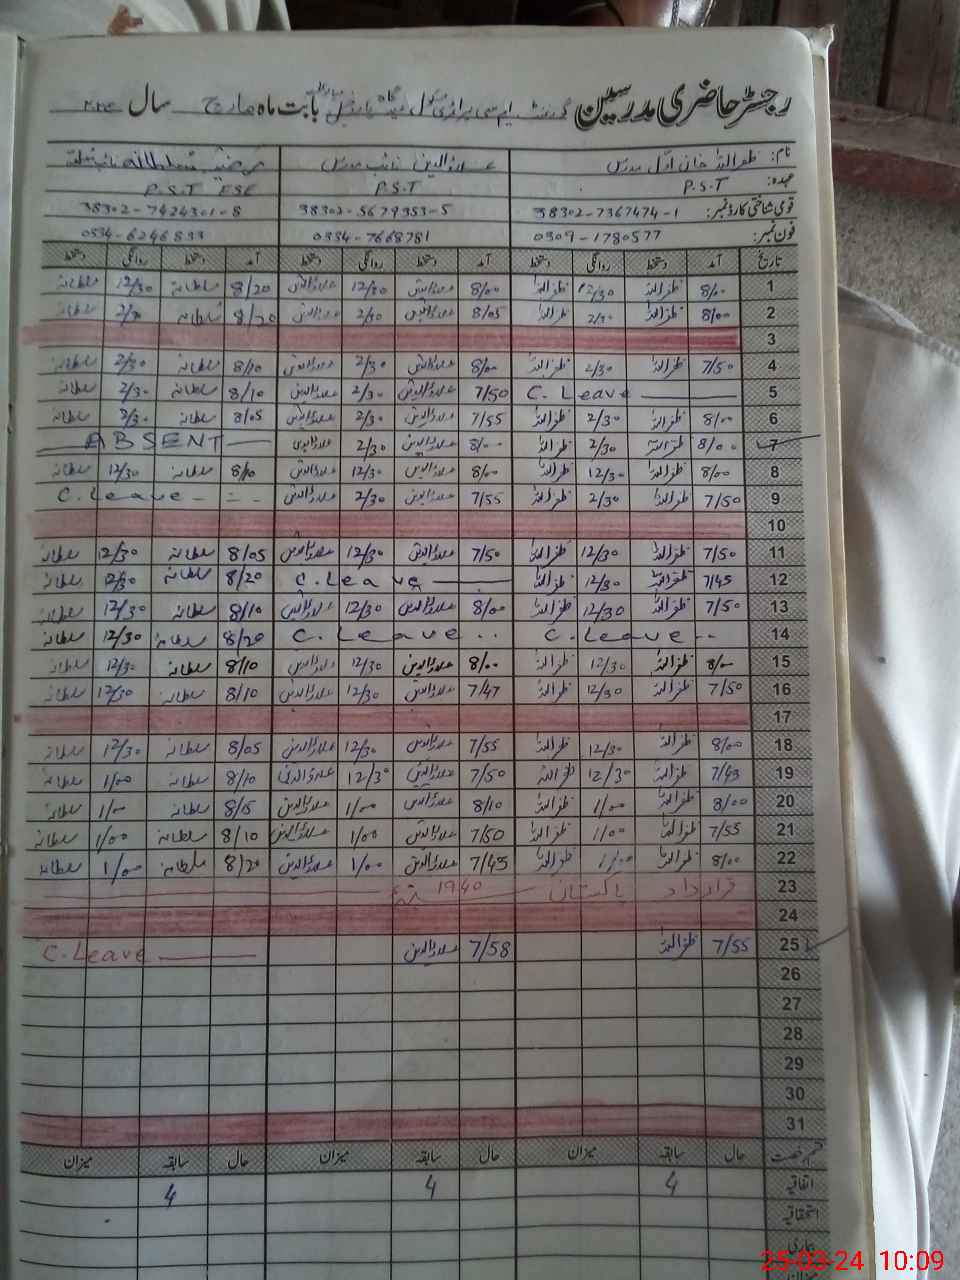 رجسٹر حاضری مدرسین گورنمنٹ ایم سی پرائمری سکول بابت ماہ مارچ سال
نام: ظفراللہ خان اوّل مدرس علاؤالدین نائب مدرس
عہدہ: P.S.T P.S.T P.S.T ESE
قومی شناختی کارڈ نمبر: 38302-7367474-1 38302-5679353-5 38302-7424301-8
فون نمبر: 0309-1780577 0334-7668781 0334-6246833
تاریخ آمد دستخط روانگی دستخط آمد دستخط روانگی دستخط آمد دستخط روانگی دستخط
1 8/00 ظفراللہ 12/30 ظفراللہ 8/00 علاؤالدین 12/30 علاؤالدین 8/20 سلطانہ 12/30 سلطانہ
2 8/00 ظفراللہ 2/30 ظفراللہ 8/05 علاؤالدین 2/30 علاؤالدین 8/20 سلطانہ 2/30 سلطانہ
3
4 7/50 ظفراللہ 2/30 ظفراللہ 8/00 علاؤالدین 2/30 علاؤالدین 8/10 سلطانہ 2/30 سلطانہ
5 C. Leave 7/50 علاؤالدین 2/30 علاؤالدین 8/10 سلطانہ 2/30 سلطانہ
6 8/00 ظفراللہ 2/30 ظفراللہ 7/55 علاؤالدین 2/30 علاؤالدین 8/05 سلطانہ 2/30 سلطانہ
7 8/00 ظفراللہ 2/30 ظفراللہ 8/00 علاؤالدین 2/30 علاؤالدین ABSENT
8 8/00 ظفراللہ 12/30 ظفراللہ 8/00 علاؤالدین 12/30 علاؤالدین 8/10 سلطانہ 12/30 سلطانہ
9 7/50 ظفراللہ 2/30 ظفراللہ 7/55 علاؤالدین 2/30 علاؤالدین C. Leave
10
11 7/50 ظفراللہ 12/30 ظفراللہ 7/50 علاؤالدین 12/30 علاؤالدین 8/05 سلطانہ 12/30 سلطانہ
12 7/45 ظفراللہ 12/30 ظفراللہ C. Leave 8/20 سلطانہ 12/30 سلطانہ
13 7/50 ظفراللہ 12/30 ظفراللہ 8/00 علاؤالدین 12/30 علاؤالدین 8/10 سلطانہ 12/30 سلطانہ
14 C. Leave C. Leave 8/20 سلطانہ 12/30 سلطانہ
15 8/00 ظفراللہ 12/30 ظفراللہ 8/00 علاؤالدین 12/30 علاؤالدین 8/10 سلطانہ 12/30 سلطانہ
16 7/50 ظفراللہ 12/30 ظفراللہ 7/47 علاؤالدین 12/30 علاؤالدین 8/10 سلطانہ 12/30 سلطانہ
17
18 8/00 ظفراللہ 12/30 ظفراللہ 7/55 علاؤالدین 12/30 علاؤالدین 8/05 سلطانہ 12/30 سلطانہ
19 7/45 ظفراللہ 12/30 ظفراللہ 7/50 علاؤالدین 12/30 علاؤالدین 8/10 سلطانہ 1/00 سلطانہ
20 8/00 ظفراللہ 1/00 ظفراللہ 8/10 علاؤالدین 1/00 علاؤالدین 8/15 سلطانہ 1/00 سلطانہ
21 7/55 ظفراللہ 1/00 ظفراللہ 7/50 علاؤالدین 1/00 علاؤالدین 8/10 سلطانہ 1/00 سلطانہ
22 8/00 ظفراللہ 1/00 ظفراللہ 7/45 علاؤالدین 1/00 علاؤالدین 8/20 سلطانہ 1/00 سلطانہ
23 قرارداد پاکستان 1940
24
25 7/55 ظفراللہ 7/58 علاؤالدین C. Leave
26
27
28
29
30
31
قسم رخصت حال سابقہ میزان حال سابقہ میزان حال سابقہ میزان
اتفاقیہ 4 4 4
استحقاقیہ
بیماری
25-03-24 10:09